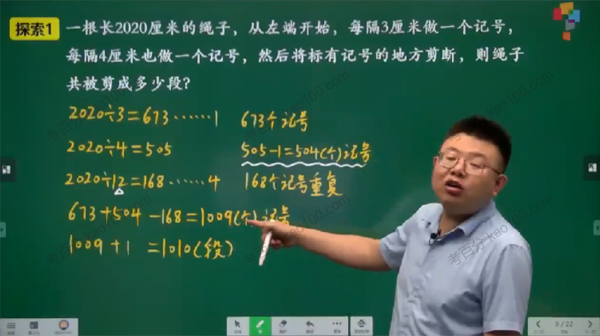 探索1
一根长2020厘米的绳子，从左端开始，每隔3厘米做一个记号，
每隔4厘米也做一个记号，然后将标有记号的地方剪断，则绳子
共被剪成多少段？
2020÷3=673……1 673个记号
2020÷4=505 505-1=504(个)记号
2020÷12=168……4 168个记号重复
673+504-168=1009(个)记号
1009+1=1010(段)
9 / 22